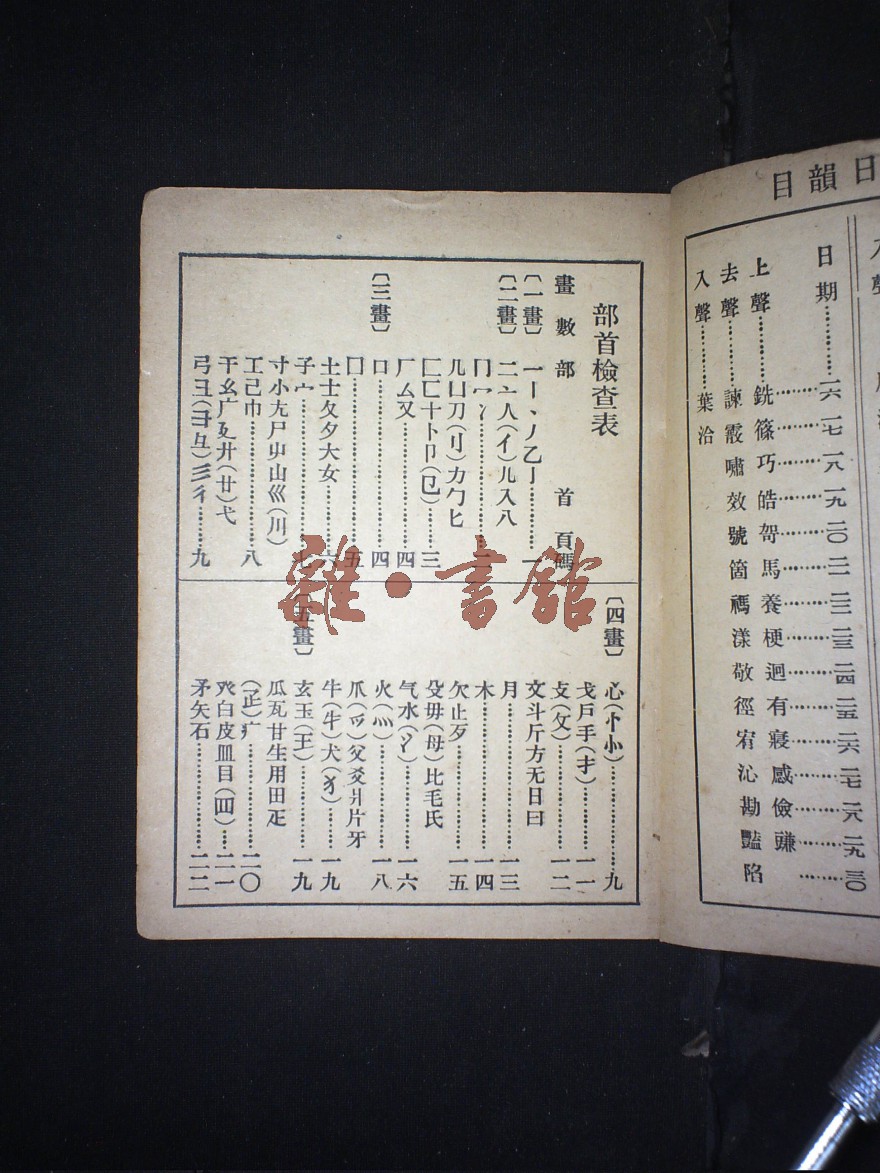 日韻目
入聲
日期…………一六 一七 一八 一九 二〇 二一 二二 二三 二四 二五 二六 二七 二八 二九 三〇
上聲…………銑 篠 巧 皓 哿 馬 養 梗 迥 有 寑 感 儉 豏
去聲…………諫 霰 嘯 效 號 箇 禡 漾 敬 徑 宥 沁 勘 豔 陷
入聲…………葉 洽
部首檢查表
畫數部 首頁碼
〔一畫〕 一丨丶丿乙亅…………一
〔二畫〕 二亠人(亻)儿入八
冂冖冫…………二
几凵刀(刂)力勹匕
匚匸十卜卩(㔾)……三
厂厶又…………四
〔三畫〕 口…………四
囗…………五
土士夂夕大女…………六
子宀…………七
寸小尢尸屮山巛(川)
工己巾…………八
干幺广廴廾(廿)弋
弓彐(彑)彡彳……九
〔四畫〕 心(忄㣺)…………九
戈戶手(扌)…………一一
攴(攵)…………一二
文斗斤方无日曰
月…………一三
木…………一四
欠止歹…………一五
殳毋(母)比毛氏
气水(氵)…………一六
火(灬)…………一八
爪(爫)父爻爿片牙
牛(牜)犬(犭)…………一九
〔五畫〕 玄玉(王)…………一九
瓜瓦甘生用田疋
(𤴔)疒…………二〇
癶白皮皿目(罒)……二一
矛矢石…………二二
雜·書館